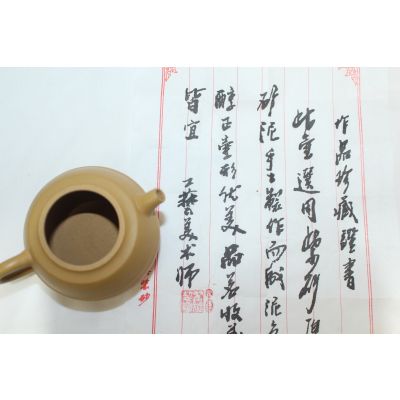 作品珍藏證書
此壷選用紫砂原
砂泥手工製作而成泥色
醇正壷形优美品茗收藏
皆宜
工藝美术师